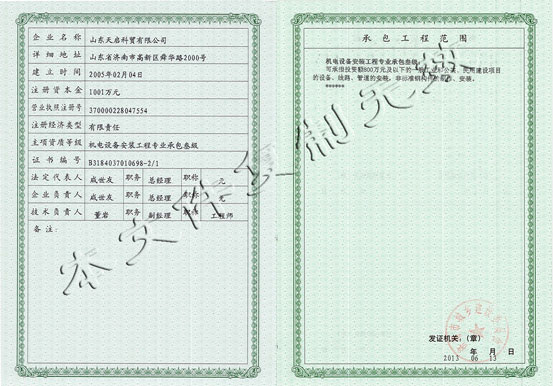 企业名称 山东天启科贸有限公司
详细地址 山东省济南市高新区舜华路2000号
建立时间 2005年02月04日
注册资本金 1001万元
营业执照注册号 370000228047554
注册经济类型 有限责任
主项资质等级 机电设备安装工程专业承包叁级
证书编号 B3184037010698-2/1
法定代表人 咸世友 职务 总经理 职称 无
企业负责人 咸世友 职务 总经理 职称 无
技术负责人 董岩 职务 副经理 职称 工程师
备注:
承包工程范围
机电设备安装工程专业承包叁级:
可承担投资额800万元及以下的一般工业和公共、民用建设项目
的设备、线路、管道的安装,非标准钢构件的制作、安装。
******
发证机关:(章)
年 月 日
2013 06 13